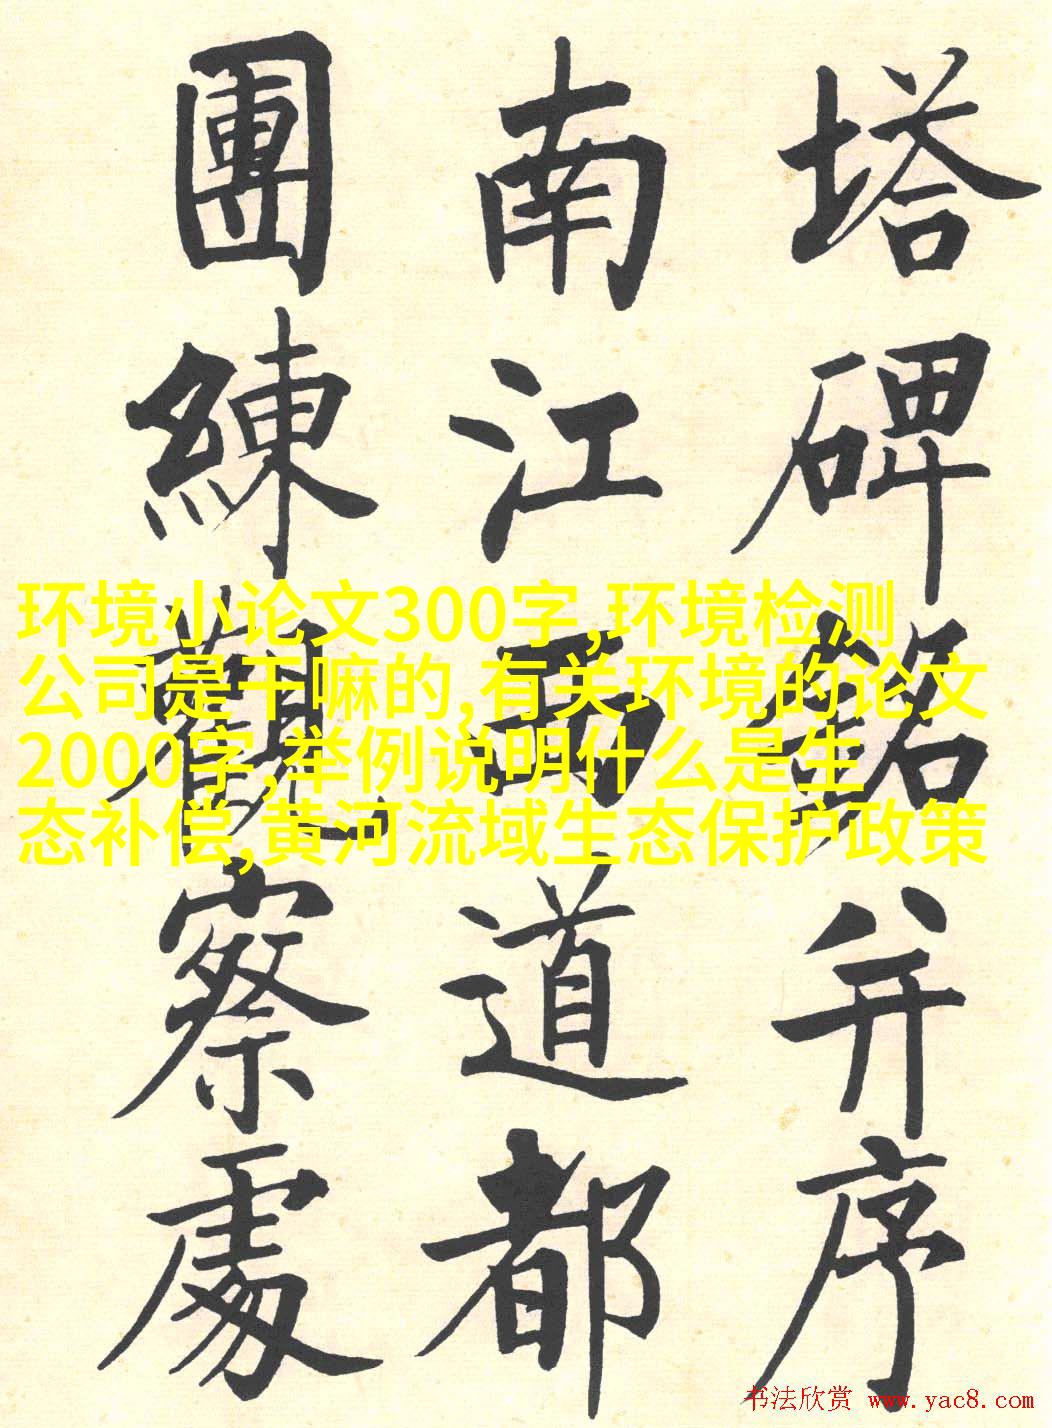 塔碑銘并序
南江西道都
團練觀察處
环境小论文300字,环境检测
公司是干嘛的,有关环境的论文
2000字,举例说明什么是生
态补偿,黄河流域生态保护政策
书法欣赏 www.yac8.com